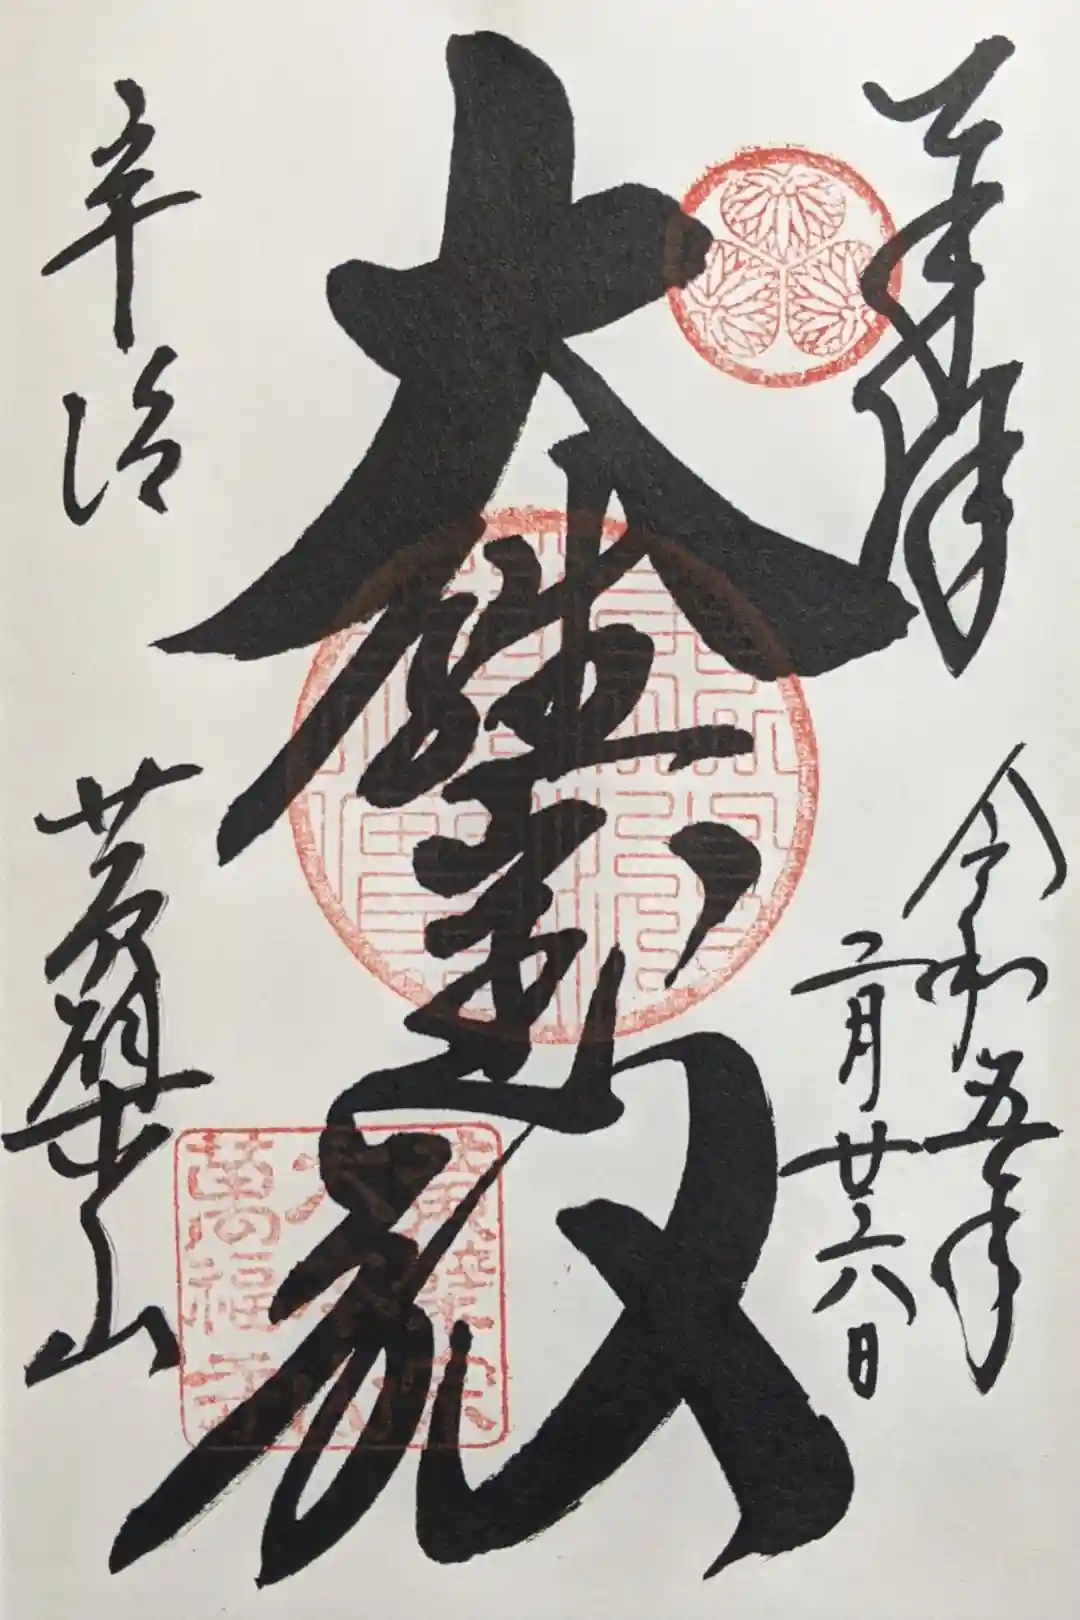 奉拝
令和五年
二月廿六日
大雄宝殿
宇治
黄檗山
黄檗宗
大本山
萬福寺